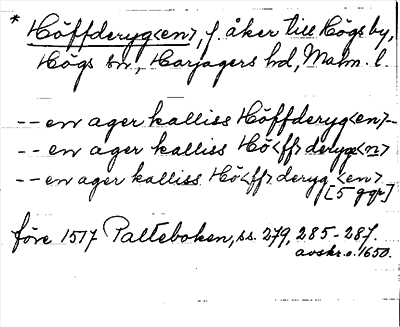 * Höffderyg<en>, f. åker till Högs by,
Högs sn., Harjagers hd, Malm. l.
-- en ager kalliss Höffderyg<en> --
-- en ager kalliss Hö<ff>deryg<n>
-- en ager kalliss Hö<ff>deryg<en>
[5 ggr]
före 1517 Palteboken, ss. 279, 285-287.
avskr. o. 1650.